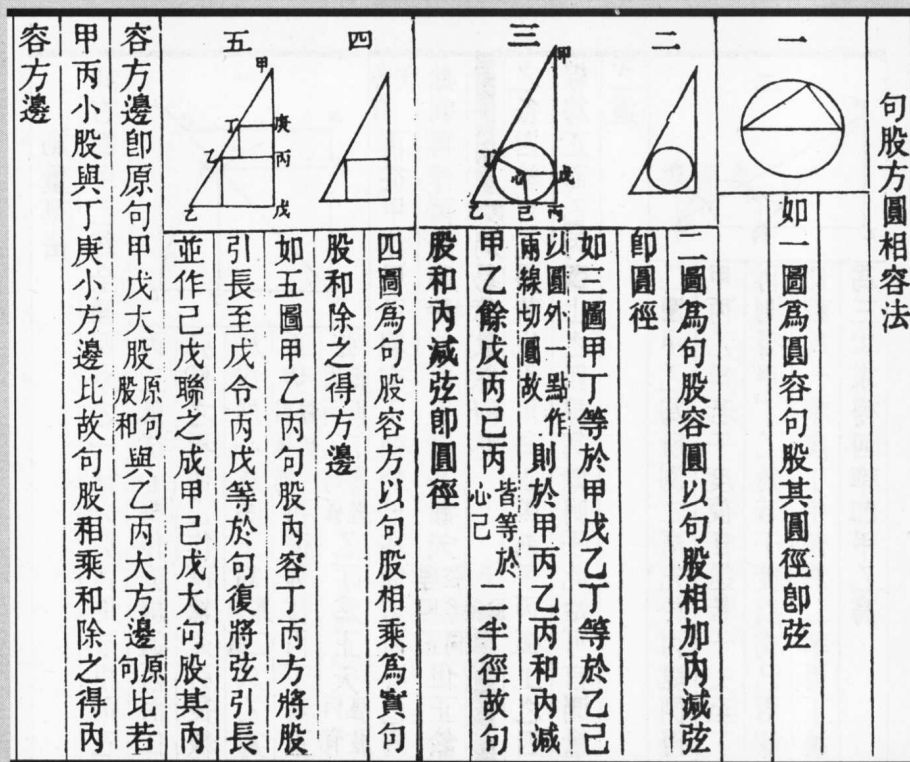 句股方圓相容法
一
如一圖爲圓容句股其圓徑卽弦
二
二圖爲句股容圓以句股相加內減弦
卽圓徑
三
甲
戊
心
乙 己 丙
如三圖甲丁等於甲戊乙丁等於乙己
以圓外一點作兩線切圓故則於甲丙乙丙和內減
甲乙餘戊丙己丙皆等於心己一半徑故句
股和內減弦卽圓徑
四
四圖爲句股容方以句股相乘爲實句
股和除之得方邊
五
甲
丁 庚
乙 丙
己 戊
如五圖甲乙丙句股內容丁丙方將股
引長至戊令丙戊等於句復將弦引長
並作己戊聯之成甲己戊大句股其內
容方邊卽原句甲戊大股原句股和與乙丙大方邊原句比若
甲丙小股與丁庚小方邊比故句股相乘和除之得內
容方邊